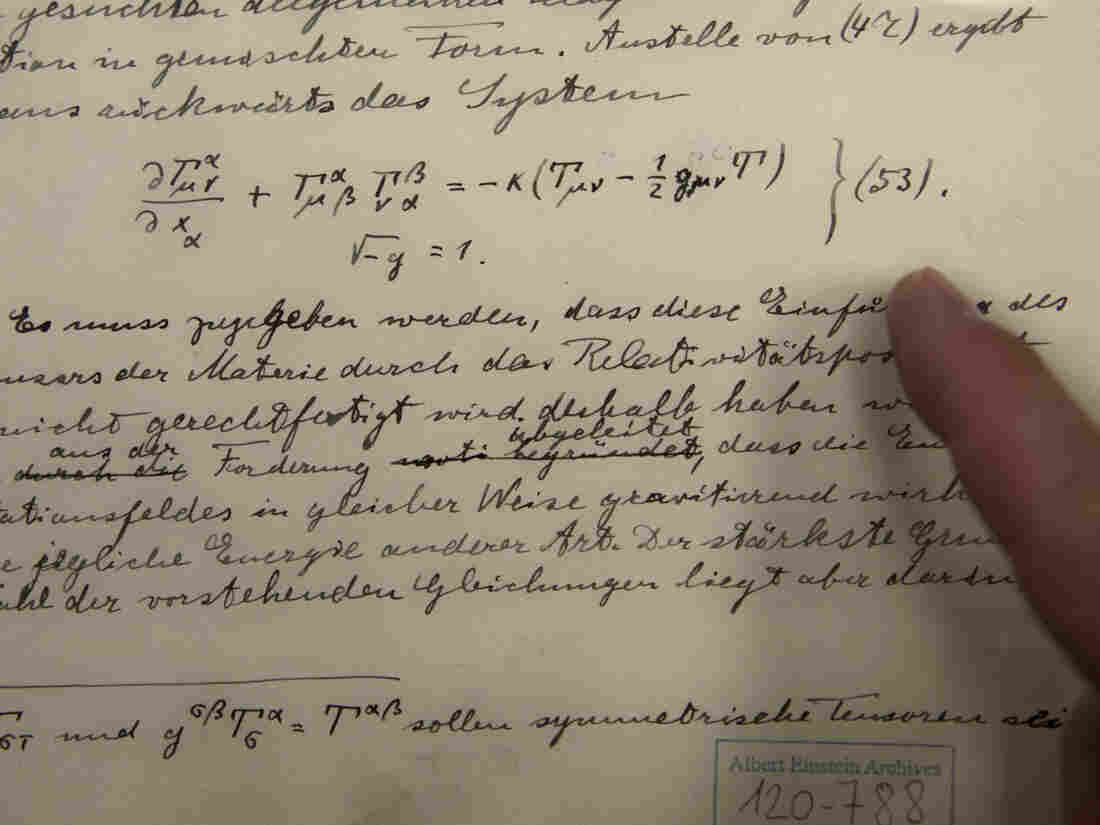 gesuchten allgemeinen
tion in gemischten Form. Anstelle von (47) ergibt
aus rückwärts das System
∂Γ^α_μν / ∂x_α + Γ^α_μβ Γ^β_να = −κ(T_μν − 1/2 g_μν T) } (53).
√−g = 1.
Es muss zugegeben werden, dass diese Einfü des
ensors der Materie durch das Relativitätspos
nicht gerechtfertigt wird. deshalb haben
aus der abgeleitet
durch die Forderung begründet, dass die
tationsfeldes in gleicher Weise gravitierend
e jegliche Energie anderer Art. Der stärkste
ahl der vorstehenden Gleichungen liegt aber darin
στ und g^σβ T^α_σ = T^αβ sollen symmetrische Tensoren sei
Albert Einstein Archives
120-788